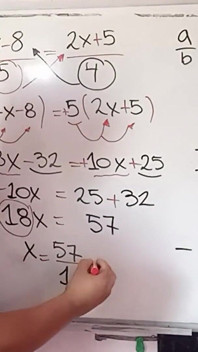 -8 = 2x+5 a
5 4 b
x-8) = +5(2x+5)
x-32 = +10x+25
-10x = 25+32
18x = 57
x = 57
1